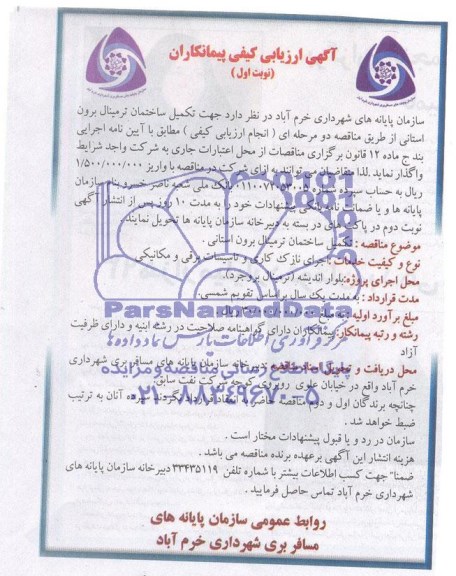 آگهی ارزیابی کیفی پیمانکاران
(نوبت اول)
سازمان پایانه های شهرداری خرم آباد در نظر دارد جهت تکمیل ساختمان ترمینال برون
استانی از طریق مناقصه دو مرحله ای ( انجام ارزیابی کیفی ) مطابق با آیین نامه اجرایی
بند ج ماده ۱۲ قانون برگزاری مناقصات از محل اعتبارات جاری به شرکت واجد شرایط
واگذار نماید .لذا متقاضیان می توانند به ازای شرکت در مناقصه با واریز ۱/۵۰۰/۰۰۰/۰۰۰
ریال به حساب سپرده شماره بانک ملی شعبه ناصر خسرو بنام سازمان
پایانه ها و یا ضمانت نامه بانکی پیشنهادات خود را به مدت ۱۰ روز پس از انتشار آگهی
نوبت دوم در پاکت های در بسته به دبیرخانه سازمان پایانه ها تحویل نمایند.
موضوع مناقصه : تکمیل ساختمان ترمینال برون استانی .
نوع و کیفیت خدمات : اجرای نازک کاری و تاسیسات برقی و مکانیکی
محل اجرای پروژه:بلوار اندیشه (ترمینال بروجرد).
مدت قرارداد : به مدت یک سال بر اساس تقویم شمسی.
مبلغ برآورد اولیه
رشته و رتبه پیمانکار: پیمانکاران دارای گواهینامه صلاحیت در رشته ابنیه و دارای ظرفیت
آزاد
محل دریافت و تحویل اسناد مناقصه : دبیرخانه سازمان پایانه های مسافربری شهرداری
خرم آباد واقع در خیابان علوی روبروی کوچه شرکت نفت سابق.
چنانچه برندگان اول و دوم مناقصه حاضر به انعقاد قرارداد نگردند سپرده آنان به ترتیب
ضبط خواهد شد .
سازمان در رد و یا قبول پیشنهادات مختار است .
هزینه انتشار این آگهی برعهده برنده مناقصه می باشد .
ضمنا" جهت کسب اطلاعات بیشتر با شماره تلفن ۳۳۴۳۵۱۱۹ دبیرخانه سازمان پایانه های
شهرداری خرم آباد تماس حاصل فرمایید .
روابط عمومی سازمان پایانه های
مسافر بری شهرداری خرم آباد
ParsNamadData
مرکز فرآوری اطلاعات پارس نماد داده ها
پایگاه اطلاع رسانی مناقصه و مزایده
۰۲۱-۸۸۳۴۹۶۷۰-۵